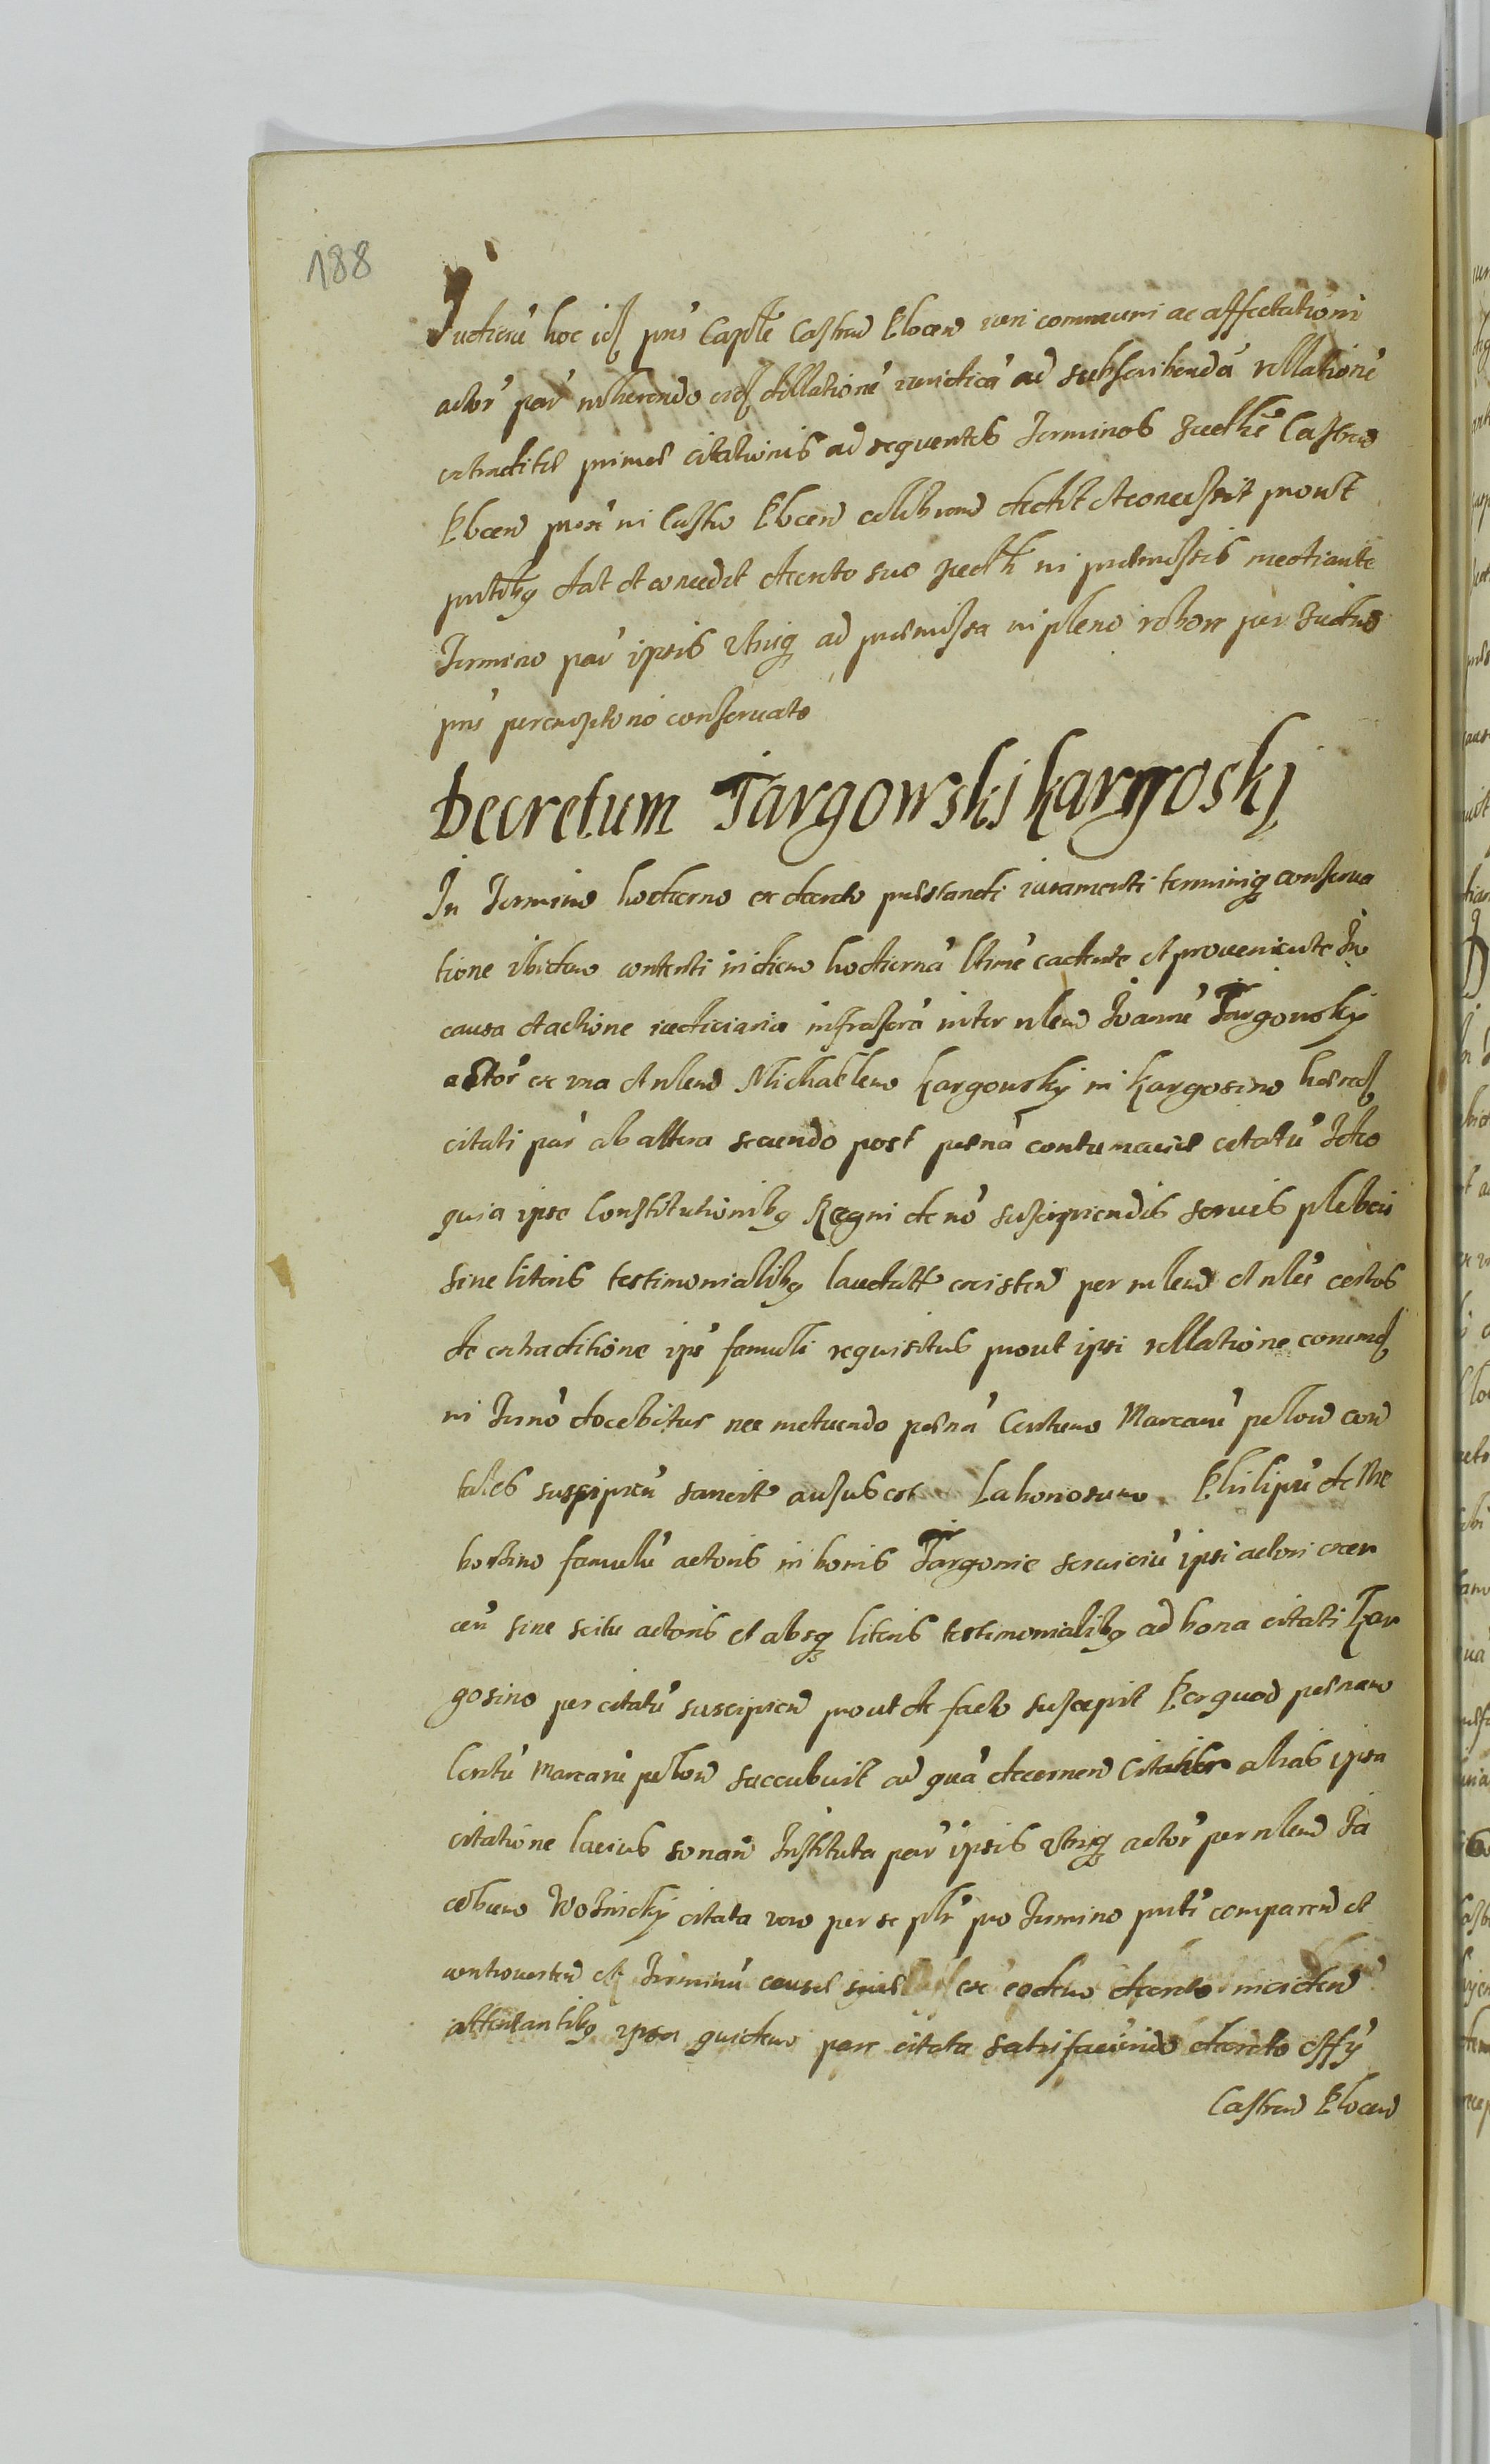 188
Judiciũ hoc ids pns Captle Castren Plocen iuri communi ac affectationi
actor par inherendo eids dillationẽ iuridicã ad subscribendã rellationẽ
extraditae primae citationis ad sequentes Terminos Judiles Castren
Plocen prox in Castro Plocen celebran dedit et concessit prout
pntibg dat et concedit decreto suo Judli in praemissis mediante
Termino par ipsis utrisq ad praemissa in pleno robore per Judiu
pns peremptorio conservato
Decretum Targowskj kargoskj
In Termino hodierno ex decreto praestandi iuramenti terminiq conserva
tione ibidem contenti in diem hodiernã ltime cadente et proveniente In
causa et actione iudiciaria infrascrã inter nlem Joannẽ Targowsky
actor ex una et nlem Michaelem Kargowsky in Kargosino haered
citati par ab altera secundo post paenã contumaciae citatũ Ideo
quia ipse Constitutionibg Regni de nõ suscipiendis servis plebeis
sine literis testimonialibg laudatt existen per mlem et nles certos
de extraditione ips famuli requisitus prout ipsi rellatione eorund
in Trno docebitur nec metuendo paenã Centum Marcarũ pellon con
tales suscipien sancit ausus est Laboriosum Philipũ de Me
borzino famulũ actoris in bonis Targonie serviciũ ipsi actori exer
cen sine scitu actoris et absq literis testimonialibg ad bona citati Kar
gosino per citatũ suscipien prout de facto suscepit Per quod paenam
Centũ Marcarũ pellon succubuit ad quã decernen Citatur alias ipsa
citatione lacius sonan Instituta par ipsis utrisq actor per nlem Ja
cobum Wosinsky citata vero per se pltr pro Termino pnti comparen et
controverten et Terminũ causae suae ex eodem decreto inciden
attentantibg ipsa quidem pars citata satisfaciendo decreto offy
Castren Plocen